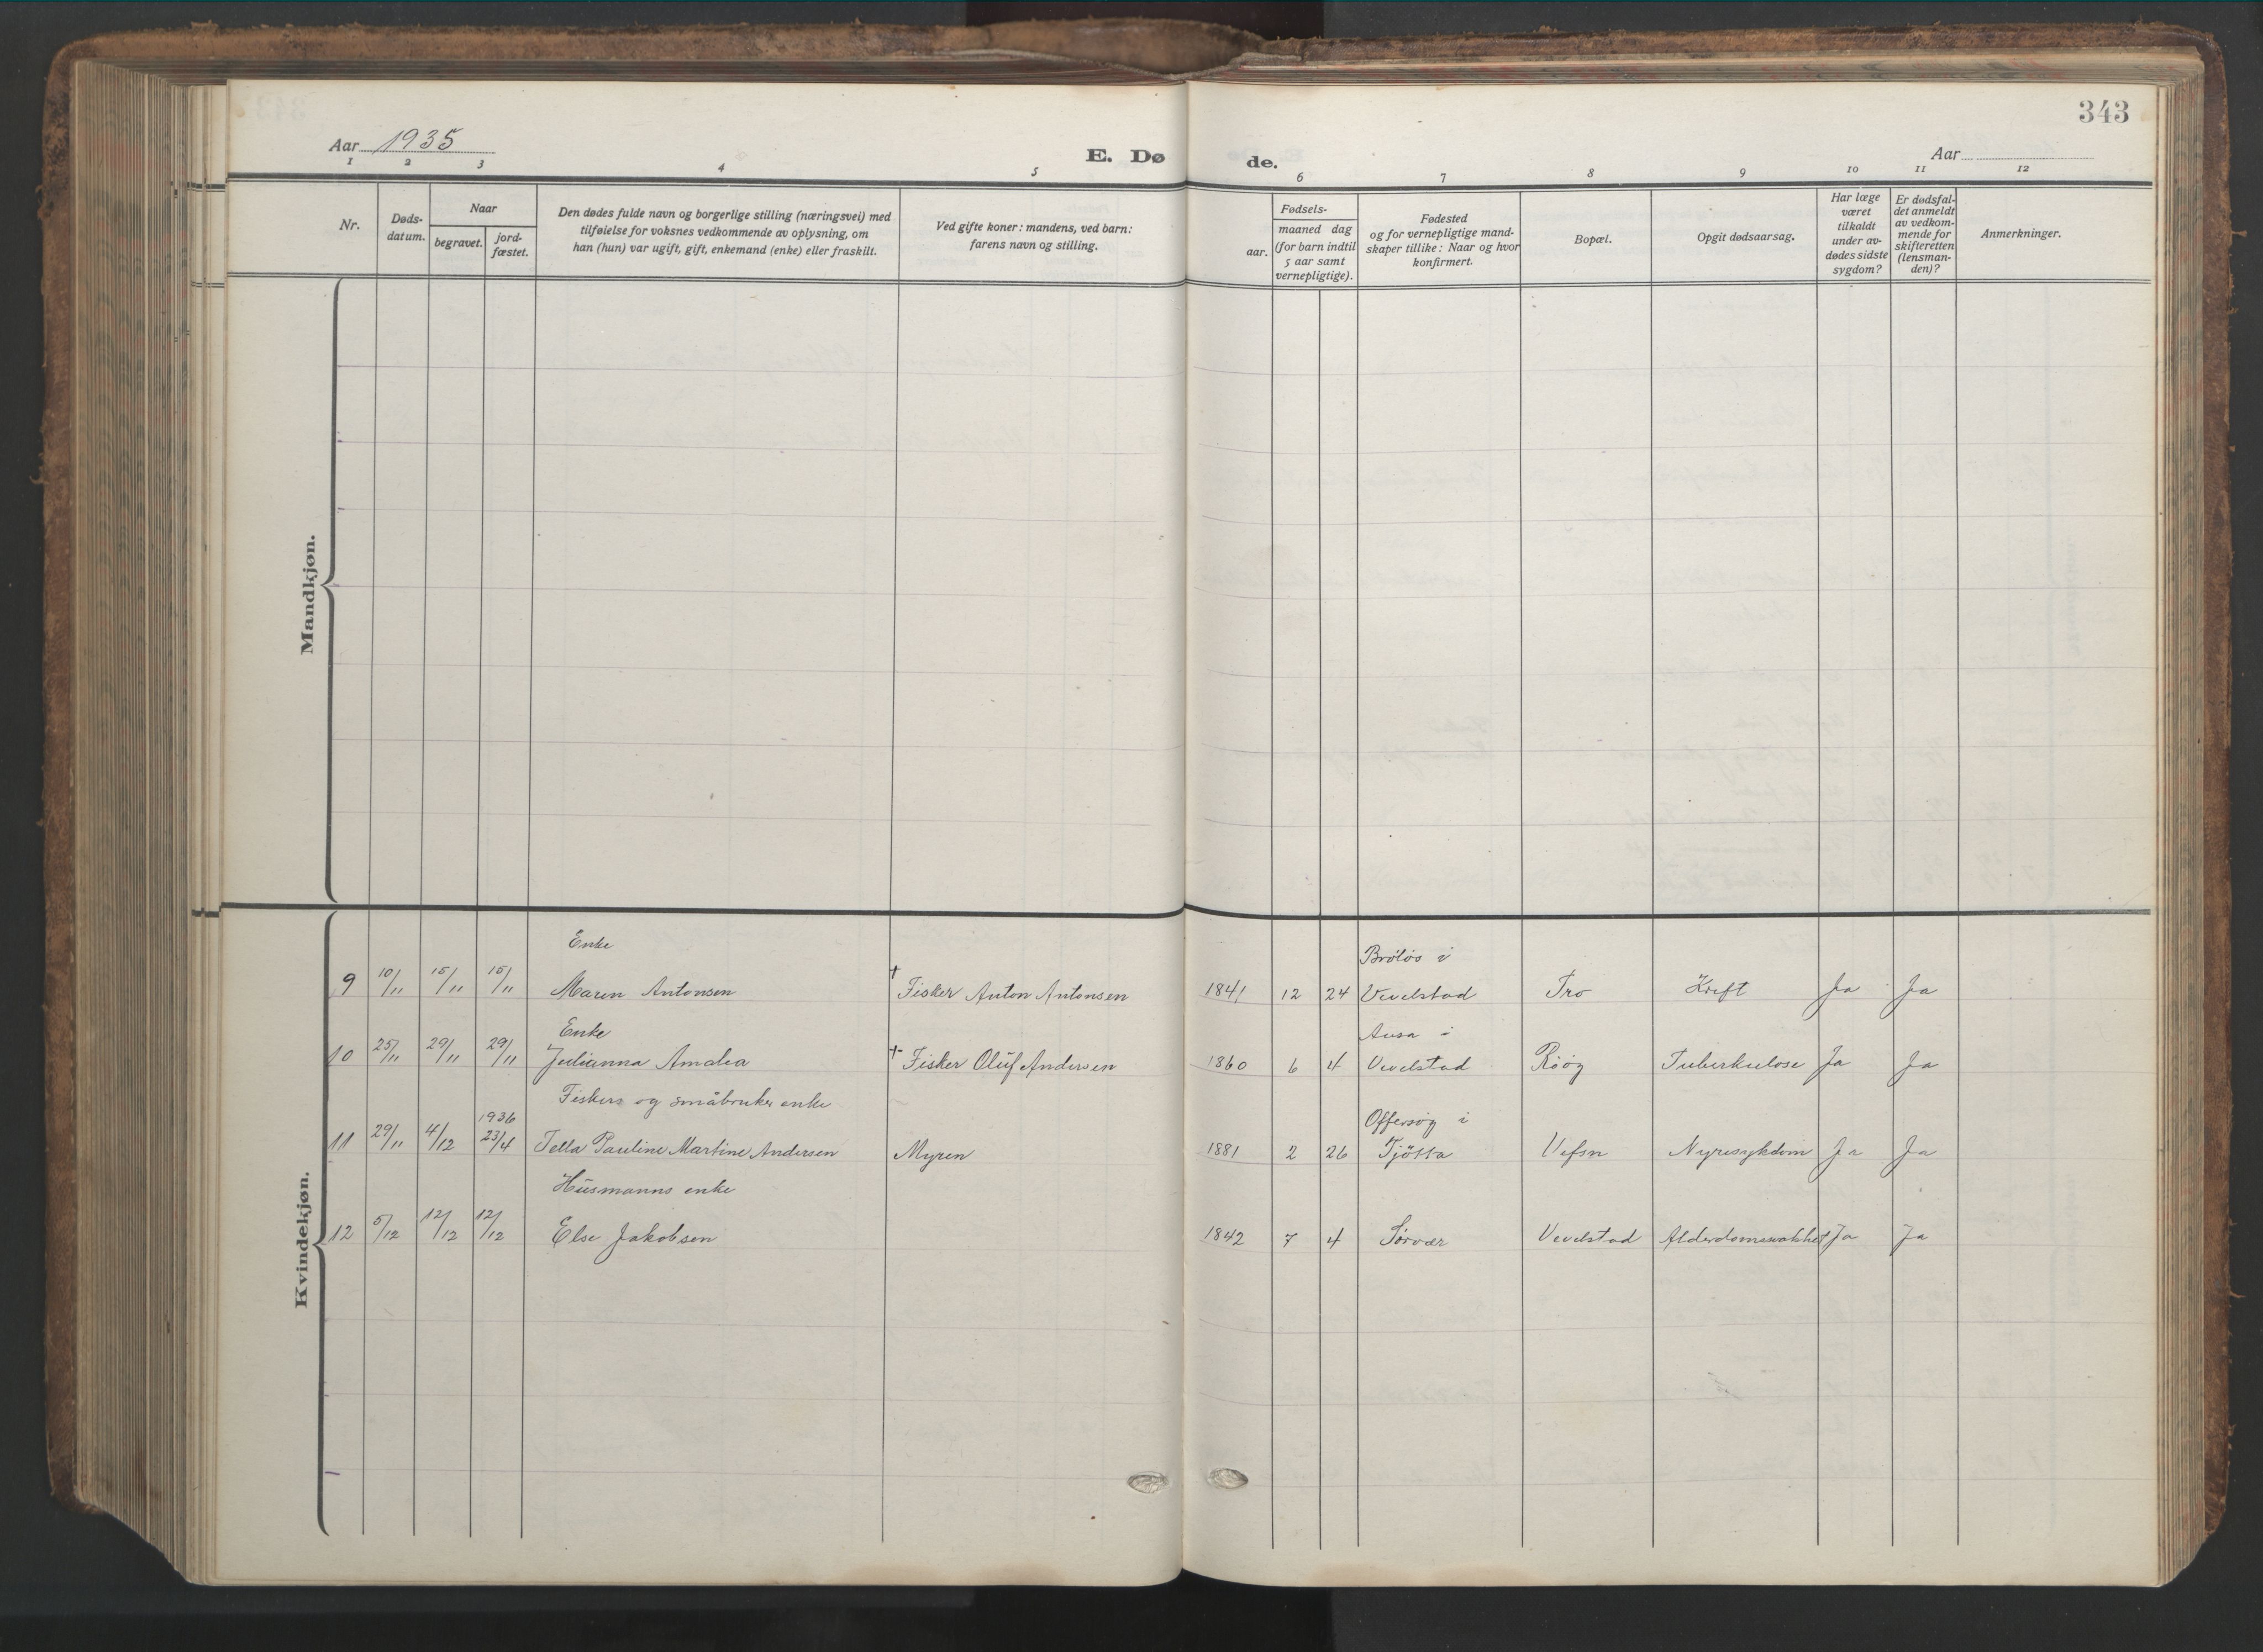 343
Aar 1935
E. Dø
de.
Aar
1 2 3 4 5 6 7 8 9 10 11 12
Nr.
Døds-
datum.
Naar
begravet.
jord-
fæstet.
Den dødes fulde navn og borgerlige stilling (næringsvei) med
tilføielse for voksnes vedkommende av oplysning, om
han (hun) var ugift, gift, enkemand (enke) eller fraskilt.
Ved gifte koner: mandens, ved barn:
farens navn og stilling.
Fødsels-
aar.
maaned dag
(for barn indtil
5 aar samt
vernepligtige).
Fødested
og for vernepligtige mand-
skaper tillike: Naar og hvor
konfirmert.
Bopæl.
Opgit dødsaarsag.
Har læge
været
tilkaldt
under av-
dødes sidste
sygdom?
Er dødsfal-
det anmeldt
av vedkom-
mende for
skifteretten
(lensman-
den)?
Anmerkninger.
Mandkjøn.
Kvindekjøn.
Enke
Brøløs i
9 10/11 15/11 15/11 Maren Antonsen † Fisker Anton Antonsen 1841 12 24 Vevelstad Tro Kreft Ja Ja
Enke
Ausa i
10 25/11 29/11 29/11 Julianna Amalia † Fisker Oluf Andersen 1860 6 4 Vevelstad Røøy Tuberkulose Ja Ja
Fiskers og småbruker enke
1936
Offersøy i
11 29/11 4/12 23/4 Tella Pauline Martine Andersen Myren 1881 2 26 Tjøtta Vefsn Nyresykdom Ja Ja
Husmanns enke
12 5/12 12/12 12/12 Else Jakobsen 1842 7 4 Sørvær Vevelstad Alderdomssvakhet Ja Ja